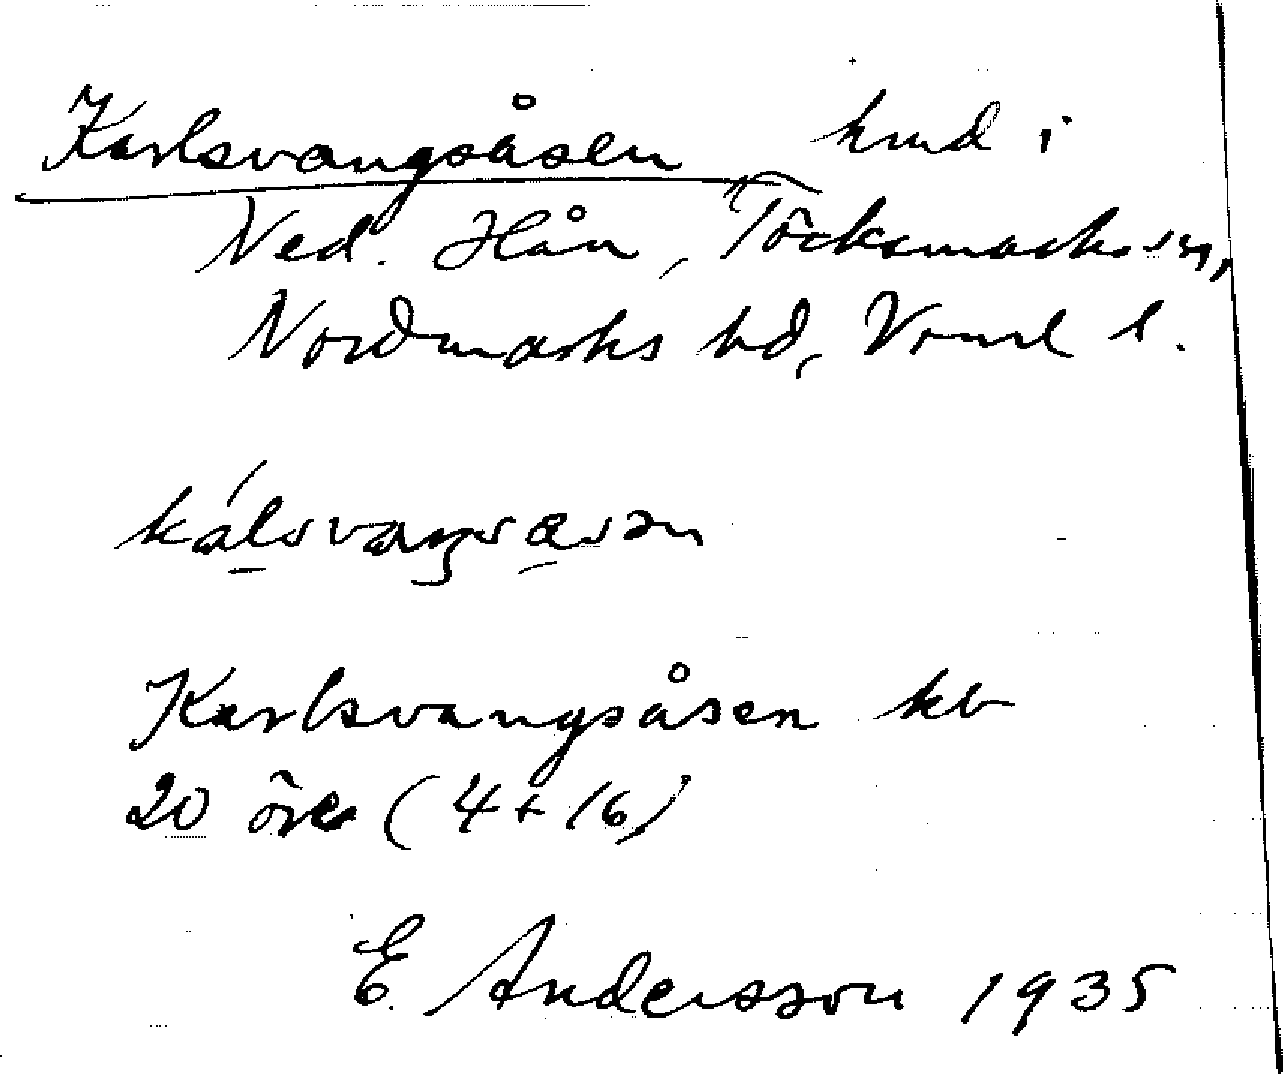 Karlsvangsåsen hmd i
Ned. Hån, Töcksmarks sn,
Nordmarks hd, Vrml l.
kálsvaŋsæsən
Karlsvangsåsen kb
20 öre (4+16)
E. Andersson 1935